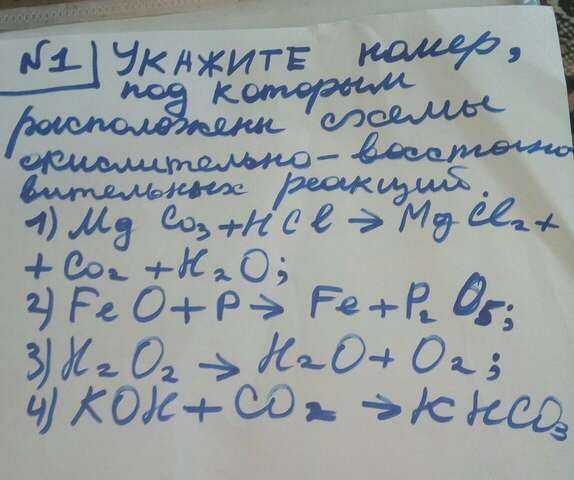 №1 УКАЖИТЕ номер,
под которым
расположены схемы
окислительно-восстано
вительных реакций.
1) Mg CO₃ + HCl → MgCl₂ +
+ CO₂ + H₂O;
2) FeO + P → Fe + P₂O₅;
3) H₂O₂ → H₂O + O₂;
4) KOH + CO₂ → KHCO₃